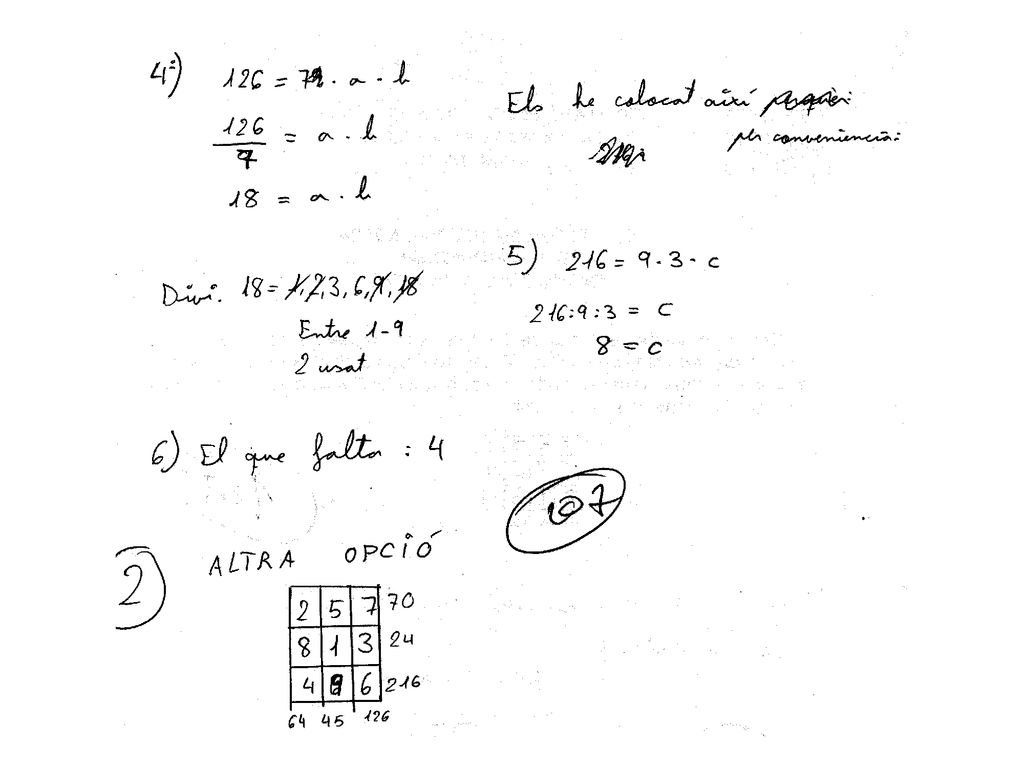 4º) 126 = 7 · a · b
126/7 = a · b
18 = a · b
Els he colocat així
per conveniencia:
Divi. 18 = 1, 2, 3, 6, 9, 18
Entre 1-9
2 usat
5) 216 = 9 · 3 · c
216:9:3 = c
8 = c
6) El que falta : 4
2) ALTRA OPCIÓ
2 5 7 70
8 1 3 24
4 9 6 216
64 45 126